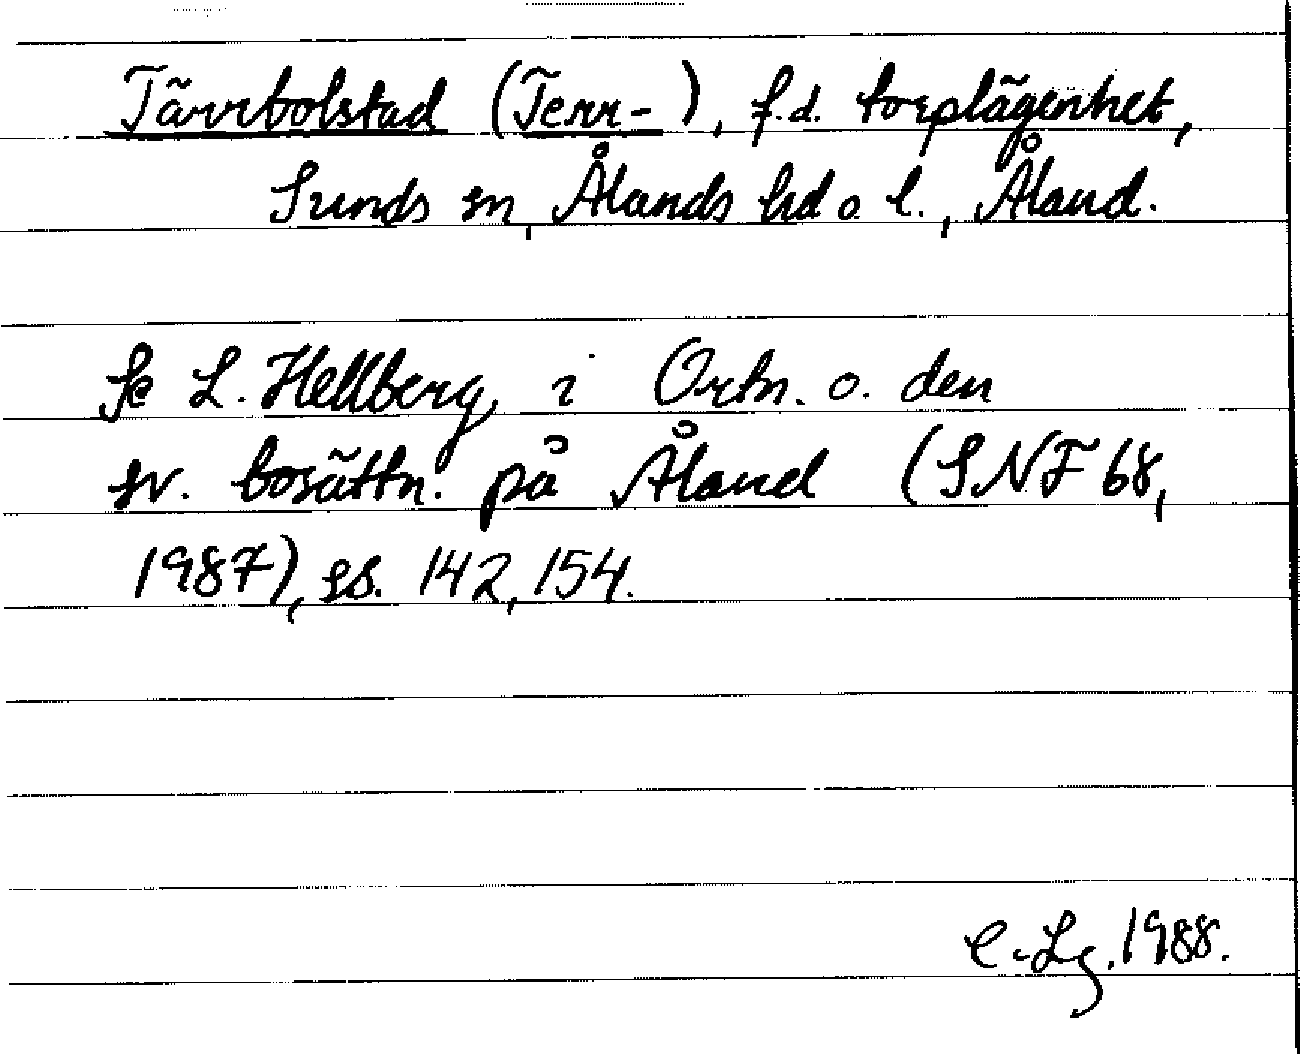 Tärrbolstad (Terr-), f.d. torplägenhet,
Sunds sn, Ålands hd o. l., Åland.
Se L. Hellberg, i Ortn. o. den
sv. bosättn. på Åland (SNF 68,
1987), ss. 142, 154.
C-Lg. 1988.